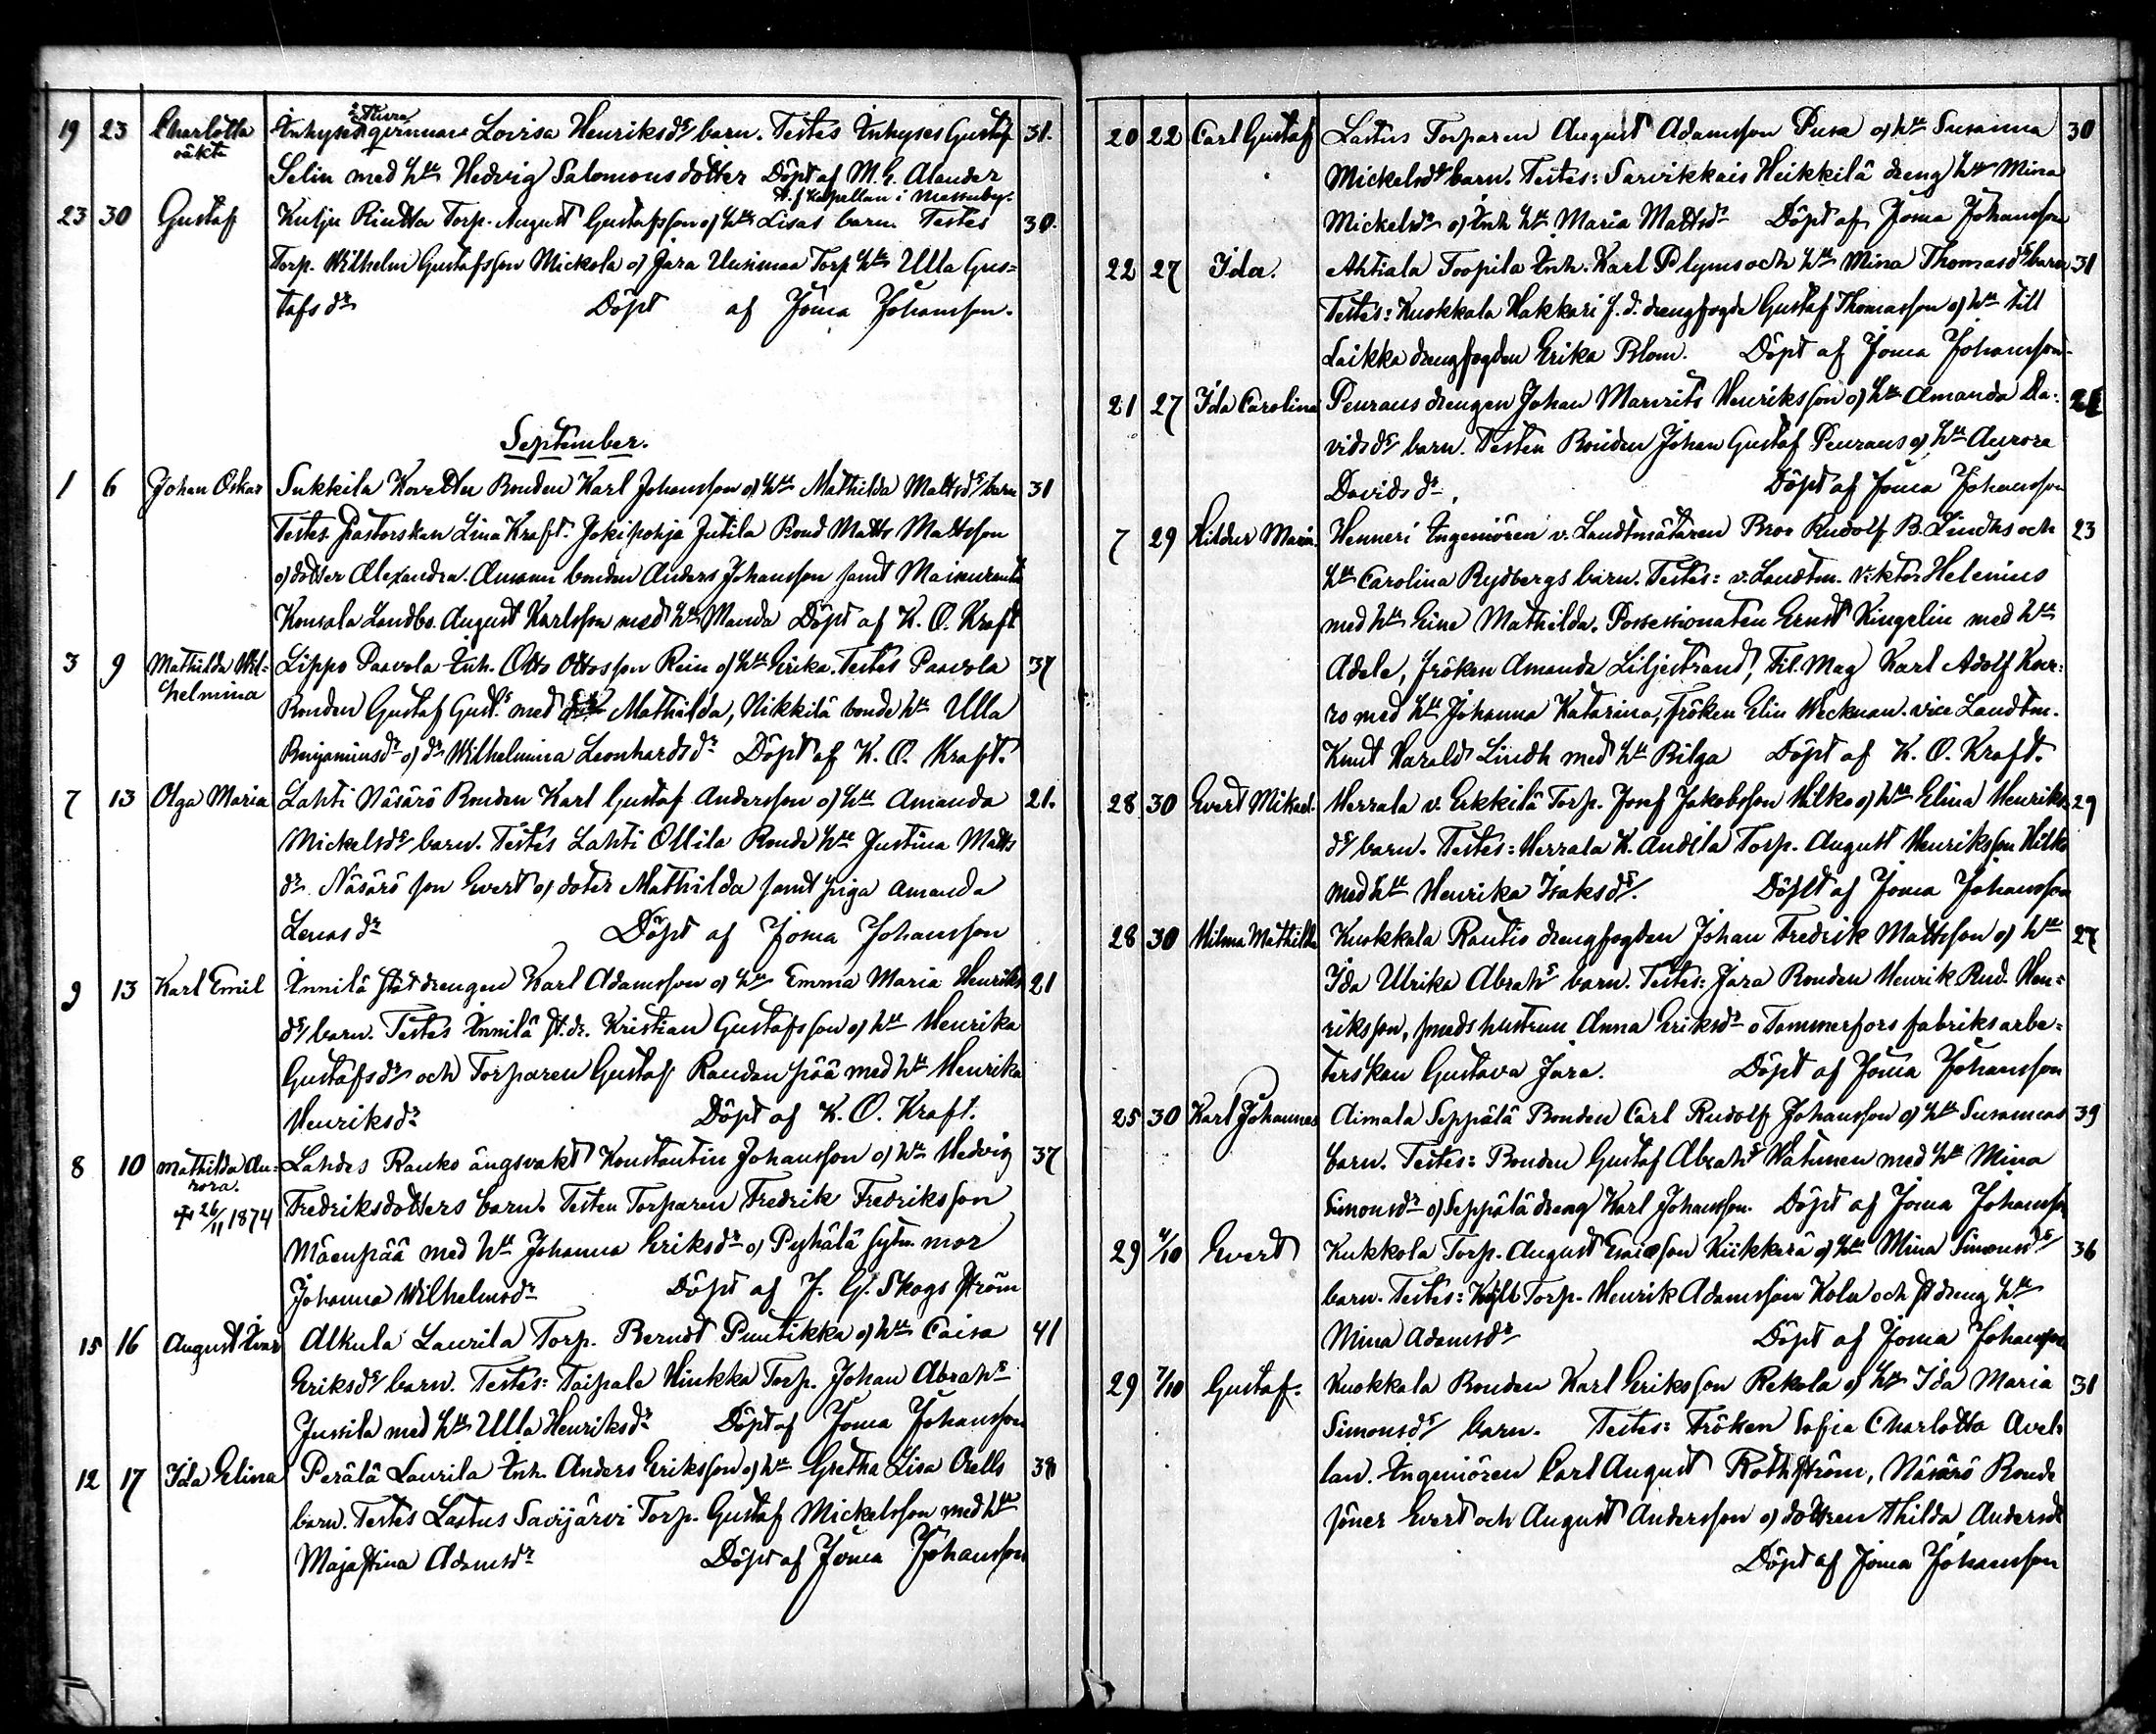 19 23 Charlotta Inhyses qvinnan Lovisa Henriksdrs barn. Testes Inhyses Gustaf 31.
oäkta Selin med hu Hedvig Salomonsdotter Döpt af M. G. Alander
Kapellan i Messuby.
23 30 Gustaf Kulju Rindtla Torp. August Gustafsson o hus Lisas barn. Testes 30.
Torp. Wilhelm Gustafsson Mickola o Jära Uusimaa Torp hu Ulla Gus=
tafsdr Döpt af Joma Johansson.
September.
1 6 Johan Oskar Sukkila Bonden Karl Johansson o hu Mathilda Mattsdrs barn 31
Testes Pastorskan Lina Kraft. Jokipohja Jutila Bond Matts Mattsson
o dotter Alexandra. bonden Anders Johansson samt
Landbo. August Karlsson med hu Manda Döpt af K. O. Kraft
3 9 Mathilda Wil= Lippo Paavola Inh. Otto Ottosson Rein o hu Erika. Testes Paavola 37
helmina Bonden Gustaf Gust. med Mathilda, Nikkilä bonde hu Ulla
Benjaminsdr o dr Wilhelmina Leonhardsdr Döpt af K. O. Kraft.
7 13 Olga Maria Lahti Näsärö Bonden Karl Gustaf Andersson o hu Amanda 21.
Mickelsdrs barn. Testes Lahti Ollila Bonde hu Justina Matts
dr. Näsärö son Evert o doter Mathilda samt piga Amanda
Lenasdr Döpt af Joma Johansson
9 13 Karl Emil Innilä statdrengen Karl Adamsson o hu Emma Maria Henriks 21
drs barn. Testes Innilä st.dr. Kristian Gustafsson o hu Henrika
Gustafsdr och Torparen Gustaf Randanpää med hu Henrika
Henriksdr Döpt af K. O. Kraft.
8 10 Mathilda Au= Lahdes Rauko ängsvakt Konstantin Johansson o hu Hedvig 37
rora. Fredriksdotters barn. Testes Torparen Fredrik Fredriksson
† 26/11 1874 Mäenpää med hu Johanna Eriksdr o Pyhälä sytn. mor
Johanna Wilhelmsdr Döpt af J. G. Skogström
15 16 August Ivar Alkula Laurila Torp. Berndt Puntikka o hu Caisa 41
Eriksdrs barn. Testes: Taipale Hinkka Torp. Johan Abrahs
Jussila med hu Ulla Henriksdr Döpt af Joma Johansson
12 17 Ida Elina Perälä Laurila Inh. Anders Eriksson o hu Gretha Lisa Orells 38
barn. Testes Lastus Savijärvi Torp. Gustaf Mickelsson med hu
Maja Stina Adamsdr Döpt af Joma Johansson
20 22 Carl Gustaf Lastus Torparen August Adamsson Pusa o hu Susanna 30
Mickelsdrs barn. Testes: Sarvikkais Heikkilä dreng hu Mina
Mickelsdr o Inh hu Maria Mattsdr Döpt af Joma Johansson
22 27 Ida. Ahtiala Toopila Inh. Karl Plyms och hu Mina Thomasdrs barn 31
Testes: Kuokkala Hakkari f. d. drengfogde Gustaf Thomasson o hu till
Laikka drengfogden Erika Blom. Döpt af Joma Johansson
21 27 Ida Carolina Peuraus drengen Johan Manrits Henriksson o hu Amanda Da= 21
vidsdrs barn. Testes Bonden Johan Gustaf Peuraus o hu Aurora
Davidsdr. Döpt af Joma Johansson
7 29 Hildur Maria. Henneri Ingeniören v. Landtmätaren Bror Rudolf B. Lindhs och 23
hu Carolina Rydbergs barn. Testes: v. Landtm. Viktor Helenius
med hu Eine Mathilda. Possessionaten Ernst Kingelin med hu
Adele, fröken Amanda Liljestrand, Fil. Mag Karl Adolf
ro med hu Johanna Katarina, fröken Elin Weckman. vice Landtm.
Knut Harald Lindh med hu Bilga Döpt af K. O. Kraft.
28 30 Evert Mikael. Herrala v. Erkkilä Torp. Josef Jakobsson Hilko o hu Elina Henriks 29
drs barn. Testes: Herrala K. Andila Torp. August Henriksson Hilko
med hu Henrika Isaksdr. Döpt af Joma Johansson
28 30 Hilma Mathilda Kuokkala Rautio drengfogden Johan Fredrik Mattsson o hu 27
Ida Ulrika Abrahs barn. Testes: Jära Bonden Henrik Rud. Hen=
riksson, smeds hustrun Anna Eriksdr o Tammerfors fabriksarbe=
terskan Gustava Jära. Döpt af Joma Johansson
25 30 Karl Johannes Aimala Seppälä Bonden Carl Rudolf Johansson o hu Susannas 39
barn. Testes: Bonden Gustaf Abrahs Hatunen med hu Mina
Simonsdr o Seppälä dreng Karl Johansson. Döpt af Joma Johansson
29 4/10 Evert Kukkola Torp. August Esaiesson Kiikkerä o hu Mina Simonsdrs 36
barn. Testes: Torp. Henrik Adamsson Kola och st dreng hu
Mina Adamsdr Döpt af Joma Johansson
29 7/10 Gustaf. Kuokkala Bonden Karl Eriksson Rekola o hu Ida Maria 31
Simonsdrs barn. Testes: Fröken Sofia Charlotta Avel=
lan. Ingeniören Carl August Rothström, Näsärö Bonde
söner Evert och August Andersson o dottren Thilda Andersdr
Döpt af Joma Johansson